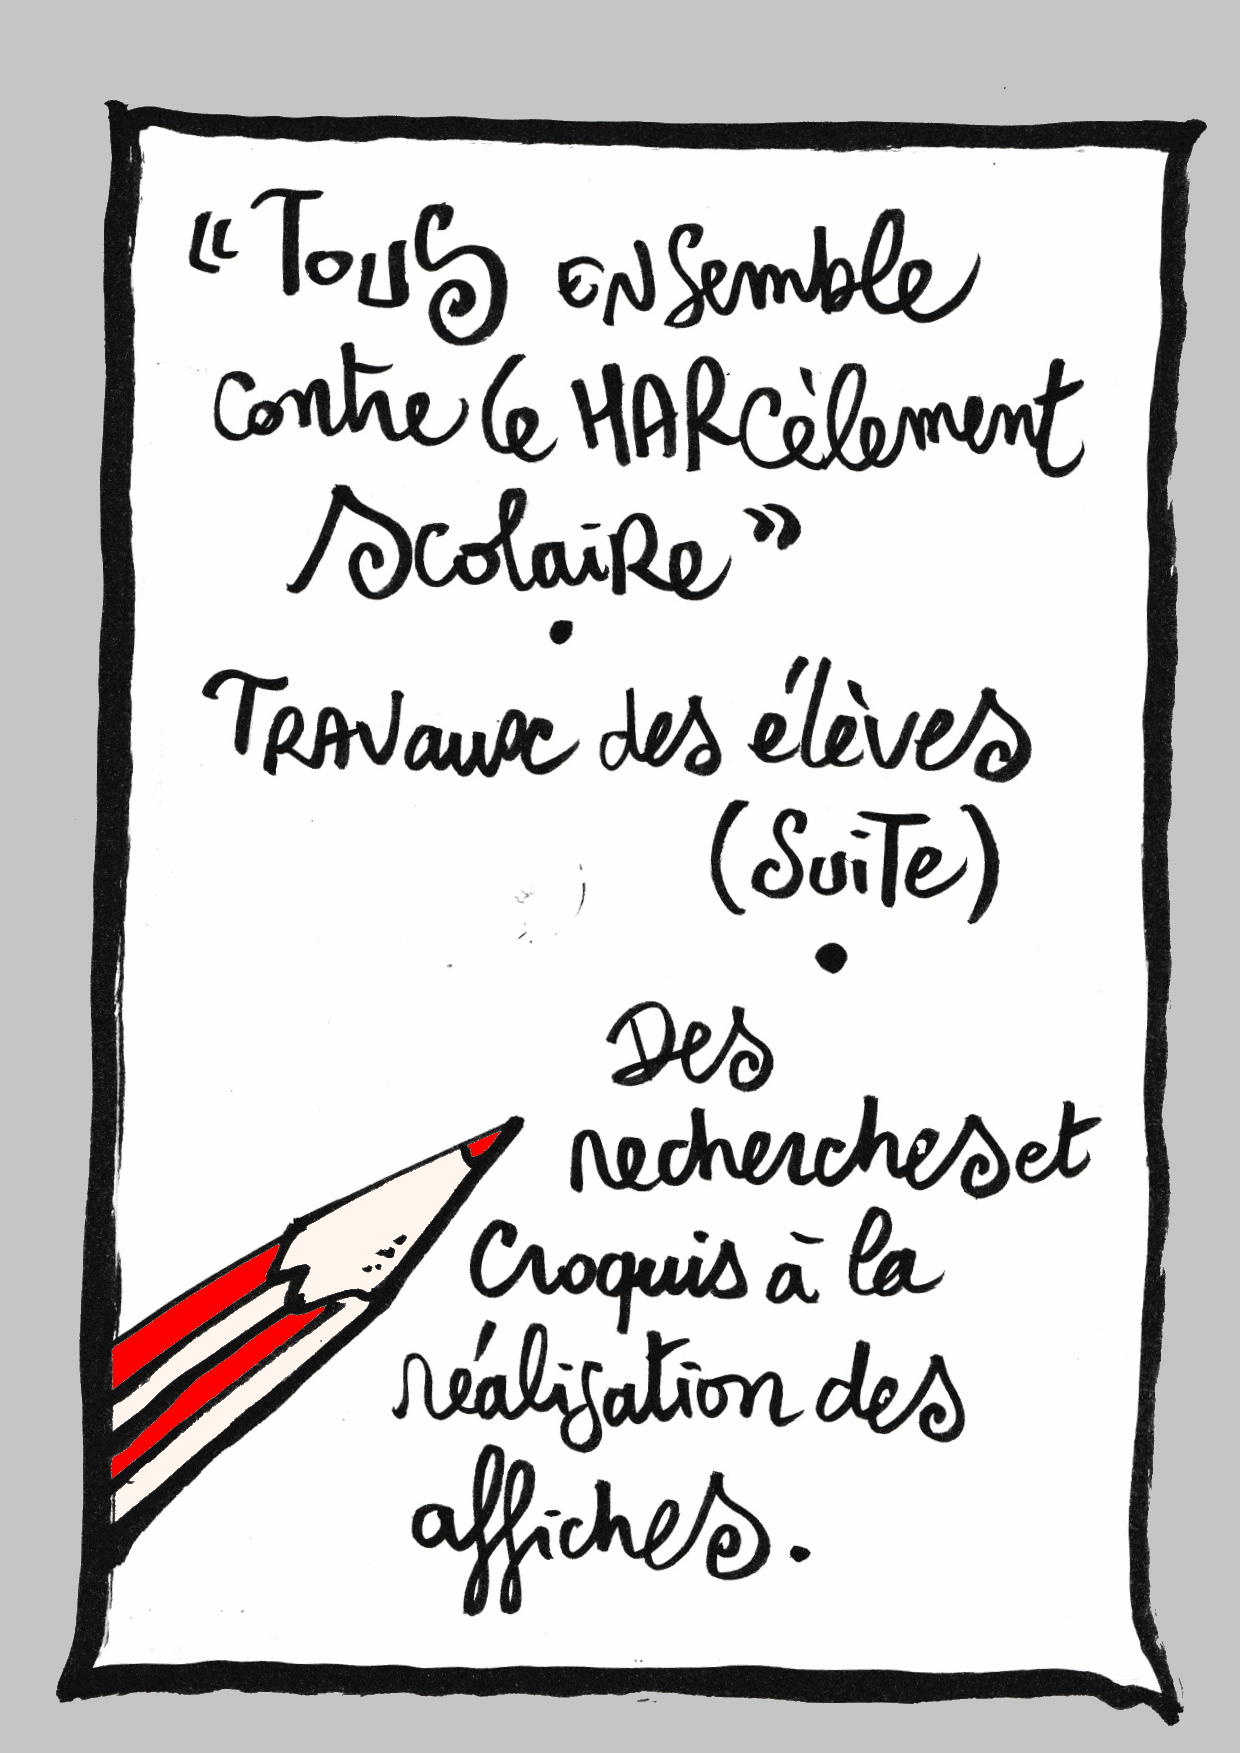 « Tous ensemble
contre le HARcèlement
scolaire »
•
TRAVaux des élèves
(suite)
•
Des
recherches et
croquis à la
réalisation des
affiches.